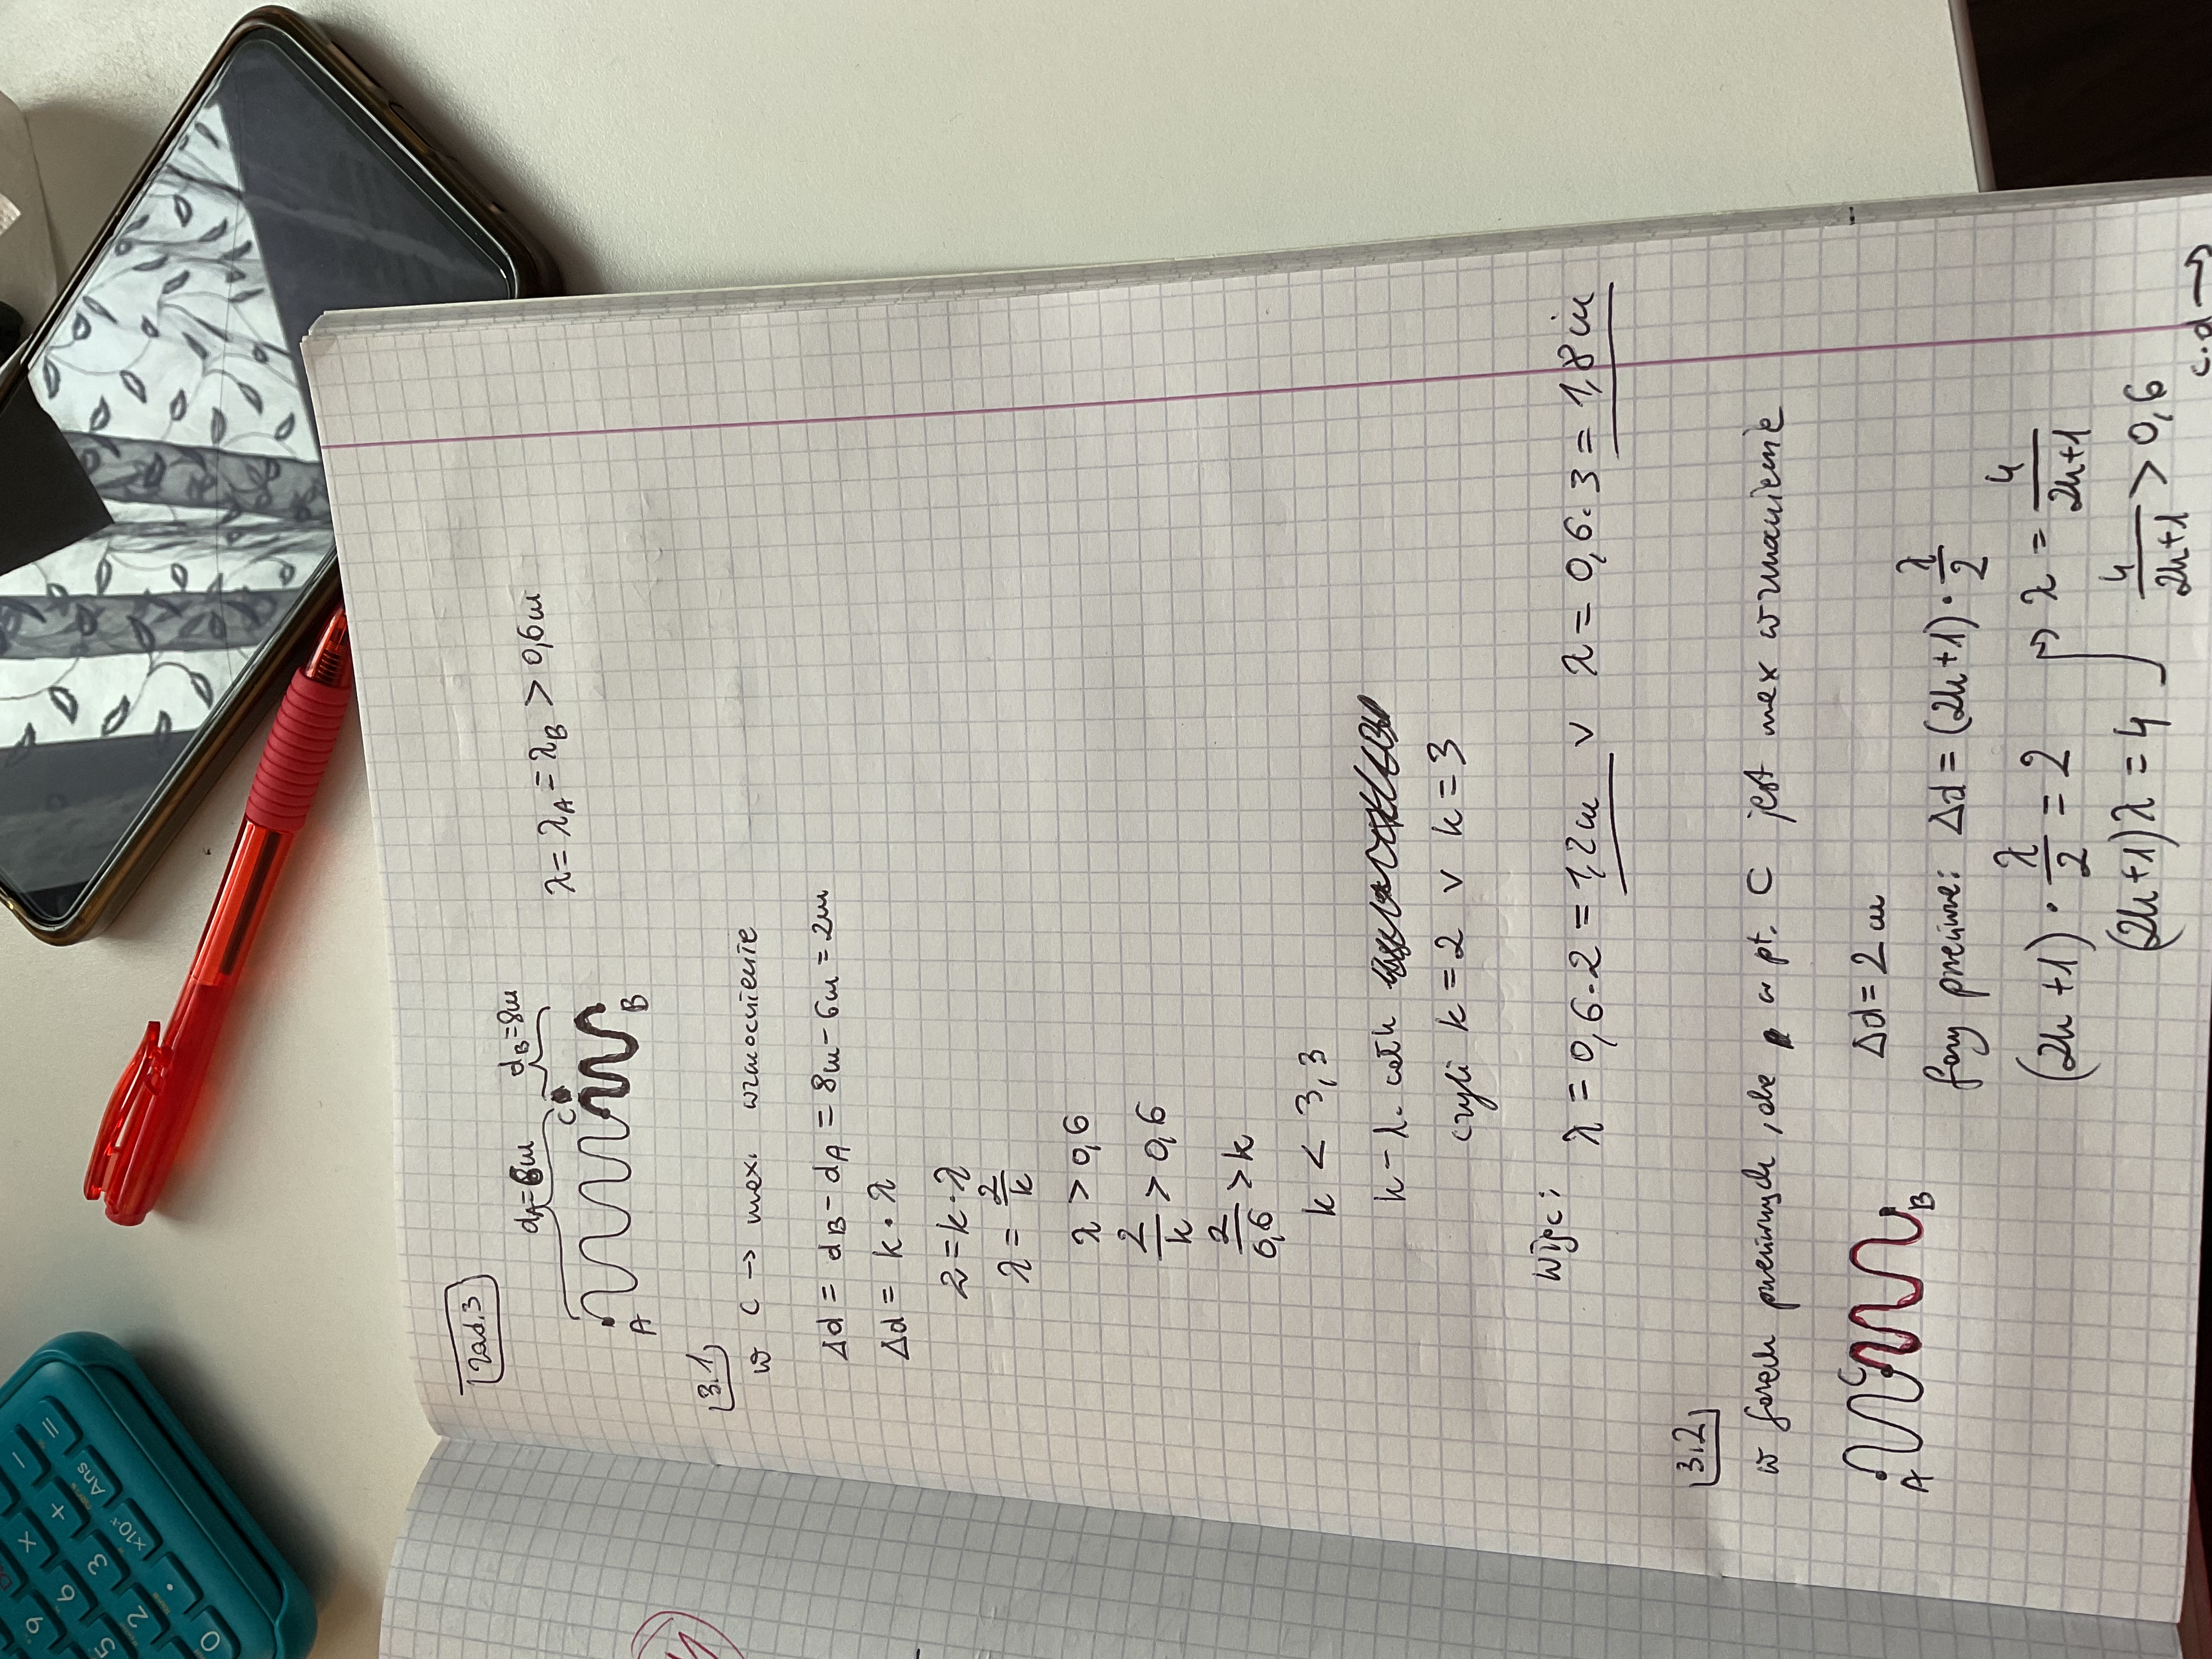 Zad.3
dA=6m dB=8m
C
A B
λ=λA=λB > 0,6m
3.1
w C → max. wzmocnienie
Δd = dB - dA = 8m - 6m = 2m
Δd = k · λ
2 = k · λ
λ = 2/k
λ > 0,6
2/k > 0,6
2/0,6 > k
k < 3,3
k - l. całk
czyli k = 2 v k = 3
Więc: λ = 0,6 · 2 = 1,2m v λ = 0,6 · 3 = 1,8m
3.2
w fazach przeciwnych, ale w pt. C jest max wzmacnienie
A C B
Δd = 2m
fazy przeciwne: Δd = (2n+1) · λ/2
(2n+1) · λ/2 = 2
(2n+1)λ = 4
λ = 4/2n+1
4/2n+1 > 0,6
c.d →
= Ans
- + ×10ˣ
× 3 ·
6 2 0
9 5